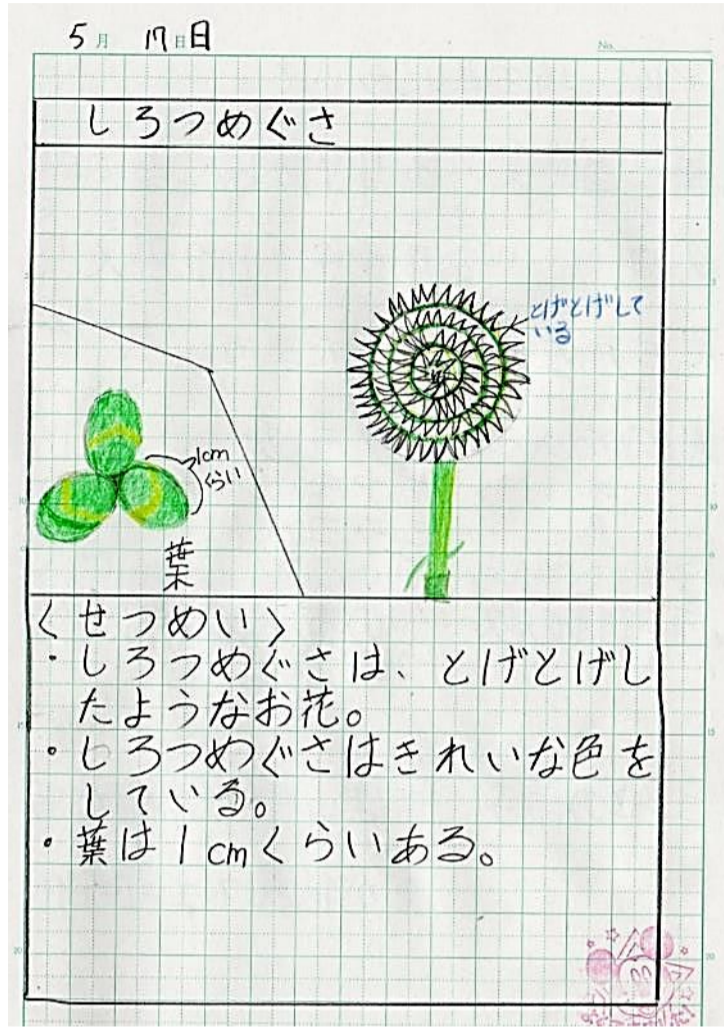 5月 17日日
No.
しろつめぐさ
とげとげして
いる
1cm
くらい
葉
〈せつめい〉
・しろつめぐさは、とげとげし
たようなお花。
・しろつめぐさはきれいな色を
している。
・葉は1cmくらいある。